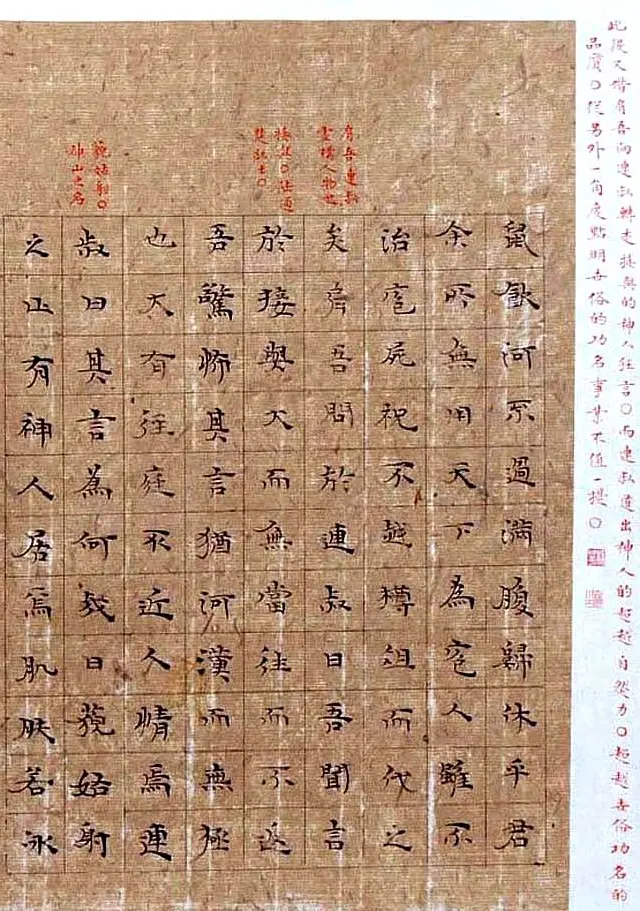 此段又借肩吾向連叔轉述接輿的神人狂言〇而連叔道出神人的超越自然力〇超越世俗功名的
品質〇從另外一角度點明世俗的功名事業不值一提〇
鼠飲河不過滿腹歸休乎君
余所無用天下為庖人雖不
治庖屍祝不越樽俎而代之
肩吾連叔
虛構人物也
矣肩吾問於連叔曰吾聞言
接輿〇陸通
楚狂士〇
於接輿大而無當往而不返
吾驚怖其言猶河漢而無極
也大有徑庭不近人情焉連
藐姑射〇
神山之名
叔曰其言為何哉曰藐姑射
之山有神人居焉肌膚若冰